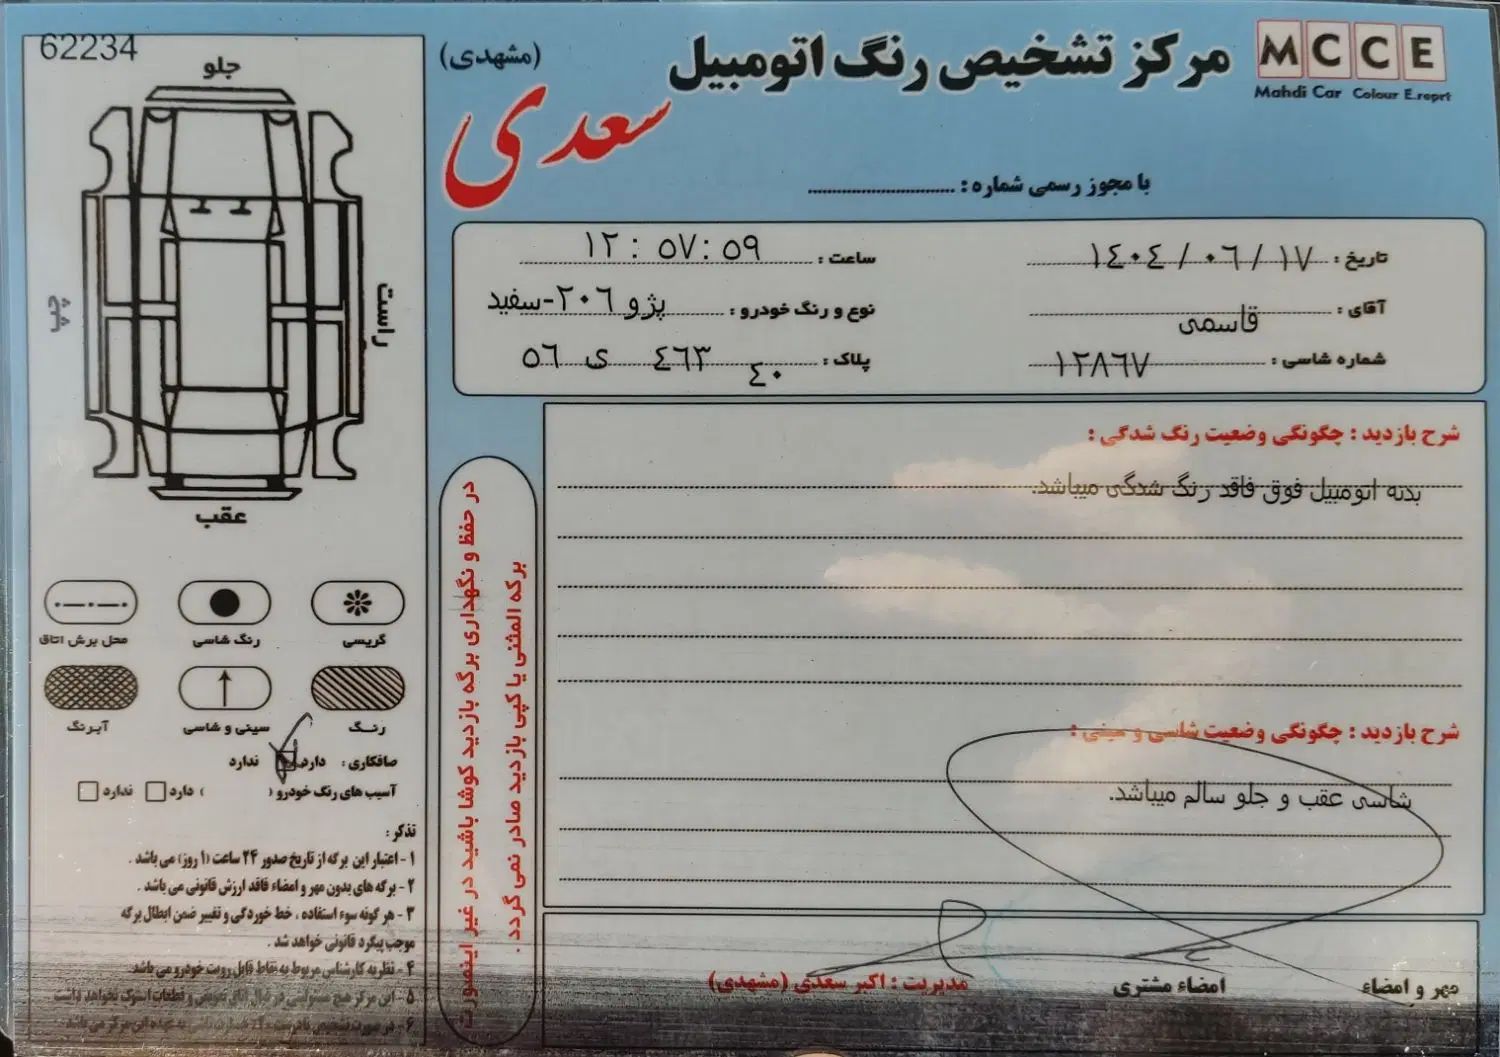 62234
مرکز تشخیص رنگ اتومبیل
سعدی
(مشهدی)
MCCE
Mahdi Car Colour E.reprt
با مجوز رسمی شماره :
تاریخ : ۱۴۰۴ / ۰۶ / ۱۷
ساعت : ۱۲ : ۵۷ : ۵۹
آقای : قاسمی
نوع و رنگ خودرو : پژو ۲۰۶-سفید
شماره شاسی : ۱۲۸۶۷
پلاک : ۵۶ ی ۴۶۳ ۴۰
شرح بازدید : چگونگی وضعیت رنگ شدگی :
بدنه اتومبیل فوق فاقد رنگ شدگی میباشد.
شرح بازدید : چگونگی وضعیت شاسی و سینی :
شاسی عقب و جلو سالم میباشد.
مهر و امضاء
امضاء مشتری
مدیریت : اکبر سعدی (مشهدی)
در حفظ و نگهداری برگه بازدید کوشا باشید در غیر اینصورت
برگه المثنی یا کپی بازدید صادر نمی گردد .
جلو
راست
چپ
عقب
گریسی
رنگ شاسی
محل برش اتاق
رنگ
سینی و شاسی
آبرنگ
صافکاری : دارد ندارد
آسیب های رنگ خودرو ( ) دارد ندارد
تذکر :
۱ - اعتبار این برگه از تاریخ صدور ۲۴ ساعت (۱ روز) می باشد .
۲ - برگه های بدون مهر و امضاء فاقد ارزش قانونی می باشد .
۳ - هر گونه سوء استفاده ، خط خوردگی و تغییر ضمن ابطال برگه
موجب پیگرد قانونی خواهد شد .
۴ - نظریه کارشناس مربوط به نقاط قابل رویت خودرو می باشد
۵ - این مرکز هیچ مسئولیتی در قبال اتاق تعویض و قطعات استوک نخواهد داشت
۶ - در صورت تشخیص نادرست